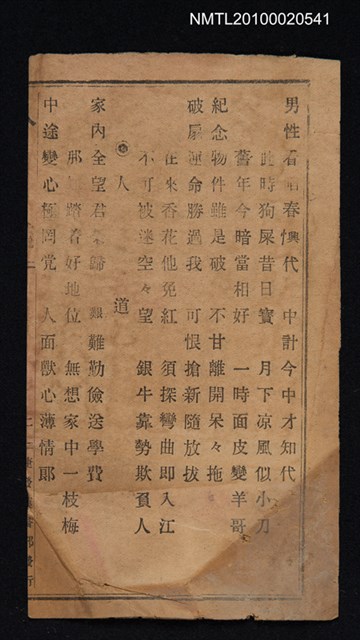 NMTL20100020541
男性看 春 代 中計今中才知代
此時狗屎昔日寶 月下凉風似小刀
舊年今暗當相好 一時面皮變羊哥
紀念物件雖是破 不甘離開呆々拖
破扇 命勝過我 可恨搶新隨放拔
在來香花他免紅 須探彎曲即入江
不可被迷空々望 銀牛靠勢欺負人
人 道
家內全望君 歸 艱難勤儉送學費
那 踏着好地位 無想家中一枝梅
中途變心極罔党 人面獸心薄情郎